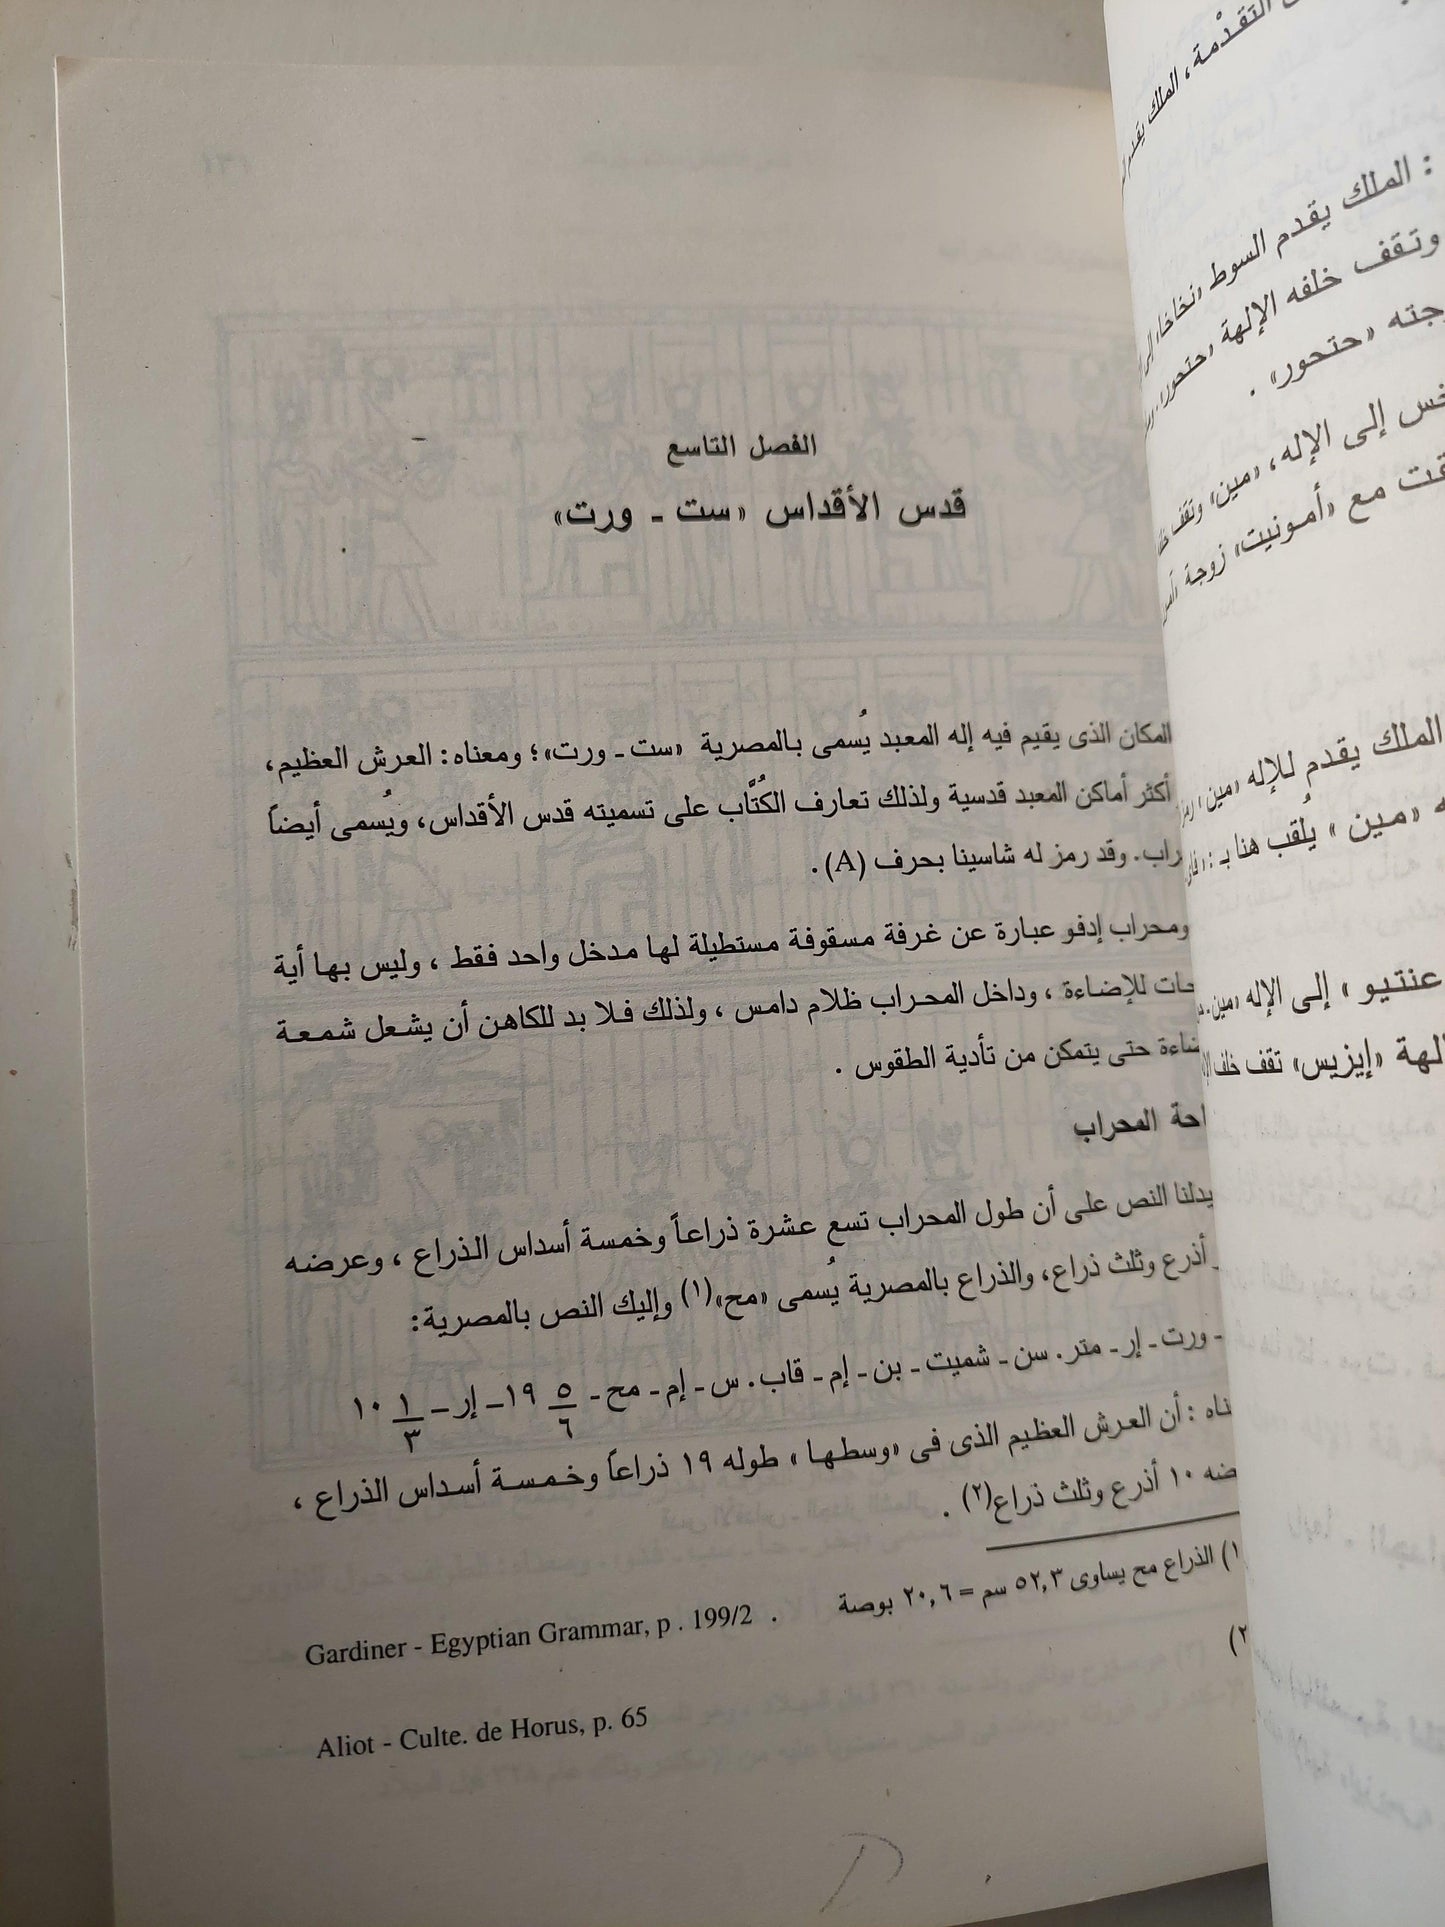 الفصل التاسع
قدس الأقداس «ست ـ ورت»
المكان الذى يقيم فيه إله المعبد يُسمى بالمصرية «ست ـ ورت»؛ ومعناه: العرش العظيم،
أكثر أماكن المعبد قدسية ولذلك تعارف الكُتَّاب على تسميته قدس الأقداس، ويُسمى أيضاً
راب. وقد رمز له شاسينا بحرف (A).
ومحراب إدفو عبارة عن غرفة مسقوفة مستطيلة لها مدخل واحد فقط ، وليس بها أية
حات للإضاءة ، وداخل المحراب ظلام دامس ، ولذلك فلا بد للكاهن أن يشعل شمعة
ضاءة حتى يتمكن من تأدية الطقوس .
احة المحراب
يدلنا النص على أن طول المحراب تسع عشرة ذراعاً وخمسة أسداس الذراع ، وعرضه
أذرع وثلث ذراع، والذراع بالمصرية يُسمى «مح»(١) وإليك النص بالمصرية:
ـ ورت ـ إر ـ متر. سن ـ شميت ـ بن ـ إم ـ قاب. س ـ إم ـ مح ـ ٥/٦ ١٩ ـ إر ـ ١/٣ ١٠
ناه : أن العرش العظيم الذى فى «وسطها» طوله ١٩ ذراعاً وخمسة أسداس الذراع ،
ضه ١٠ أذرع وثلث ذراع(٢) .
١) الذراع مح يساوى ٥٢,٣ سم = ٢٠,٦ بوصة
Gardiner - Egyptian Grammar, p . 199/2 .
٢)
Aliot - Culte. de Horus, p. 65
التقدْمة، الملك يقدم
: الملك يقدم السوط «نخاخا»
وتقف خلفه الإلهة «حتحور»
جته «حتحور» .
خس إلى الإله، «مين» وتقف
قت مع «أمونيت» زوجة
الملك يقدم للإله «مين»
ه «مين» يُلقب هنا بـ :
عنتيو » إلى الإله «مين»
لهة «إيزيس» تقف خلف